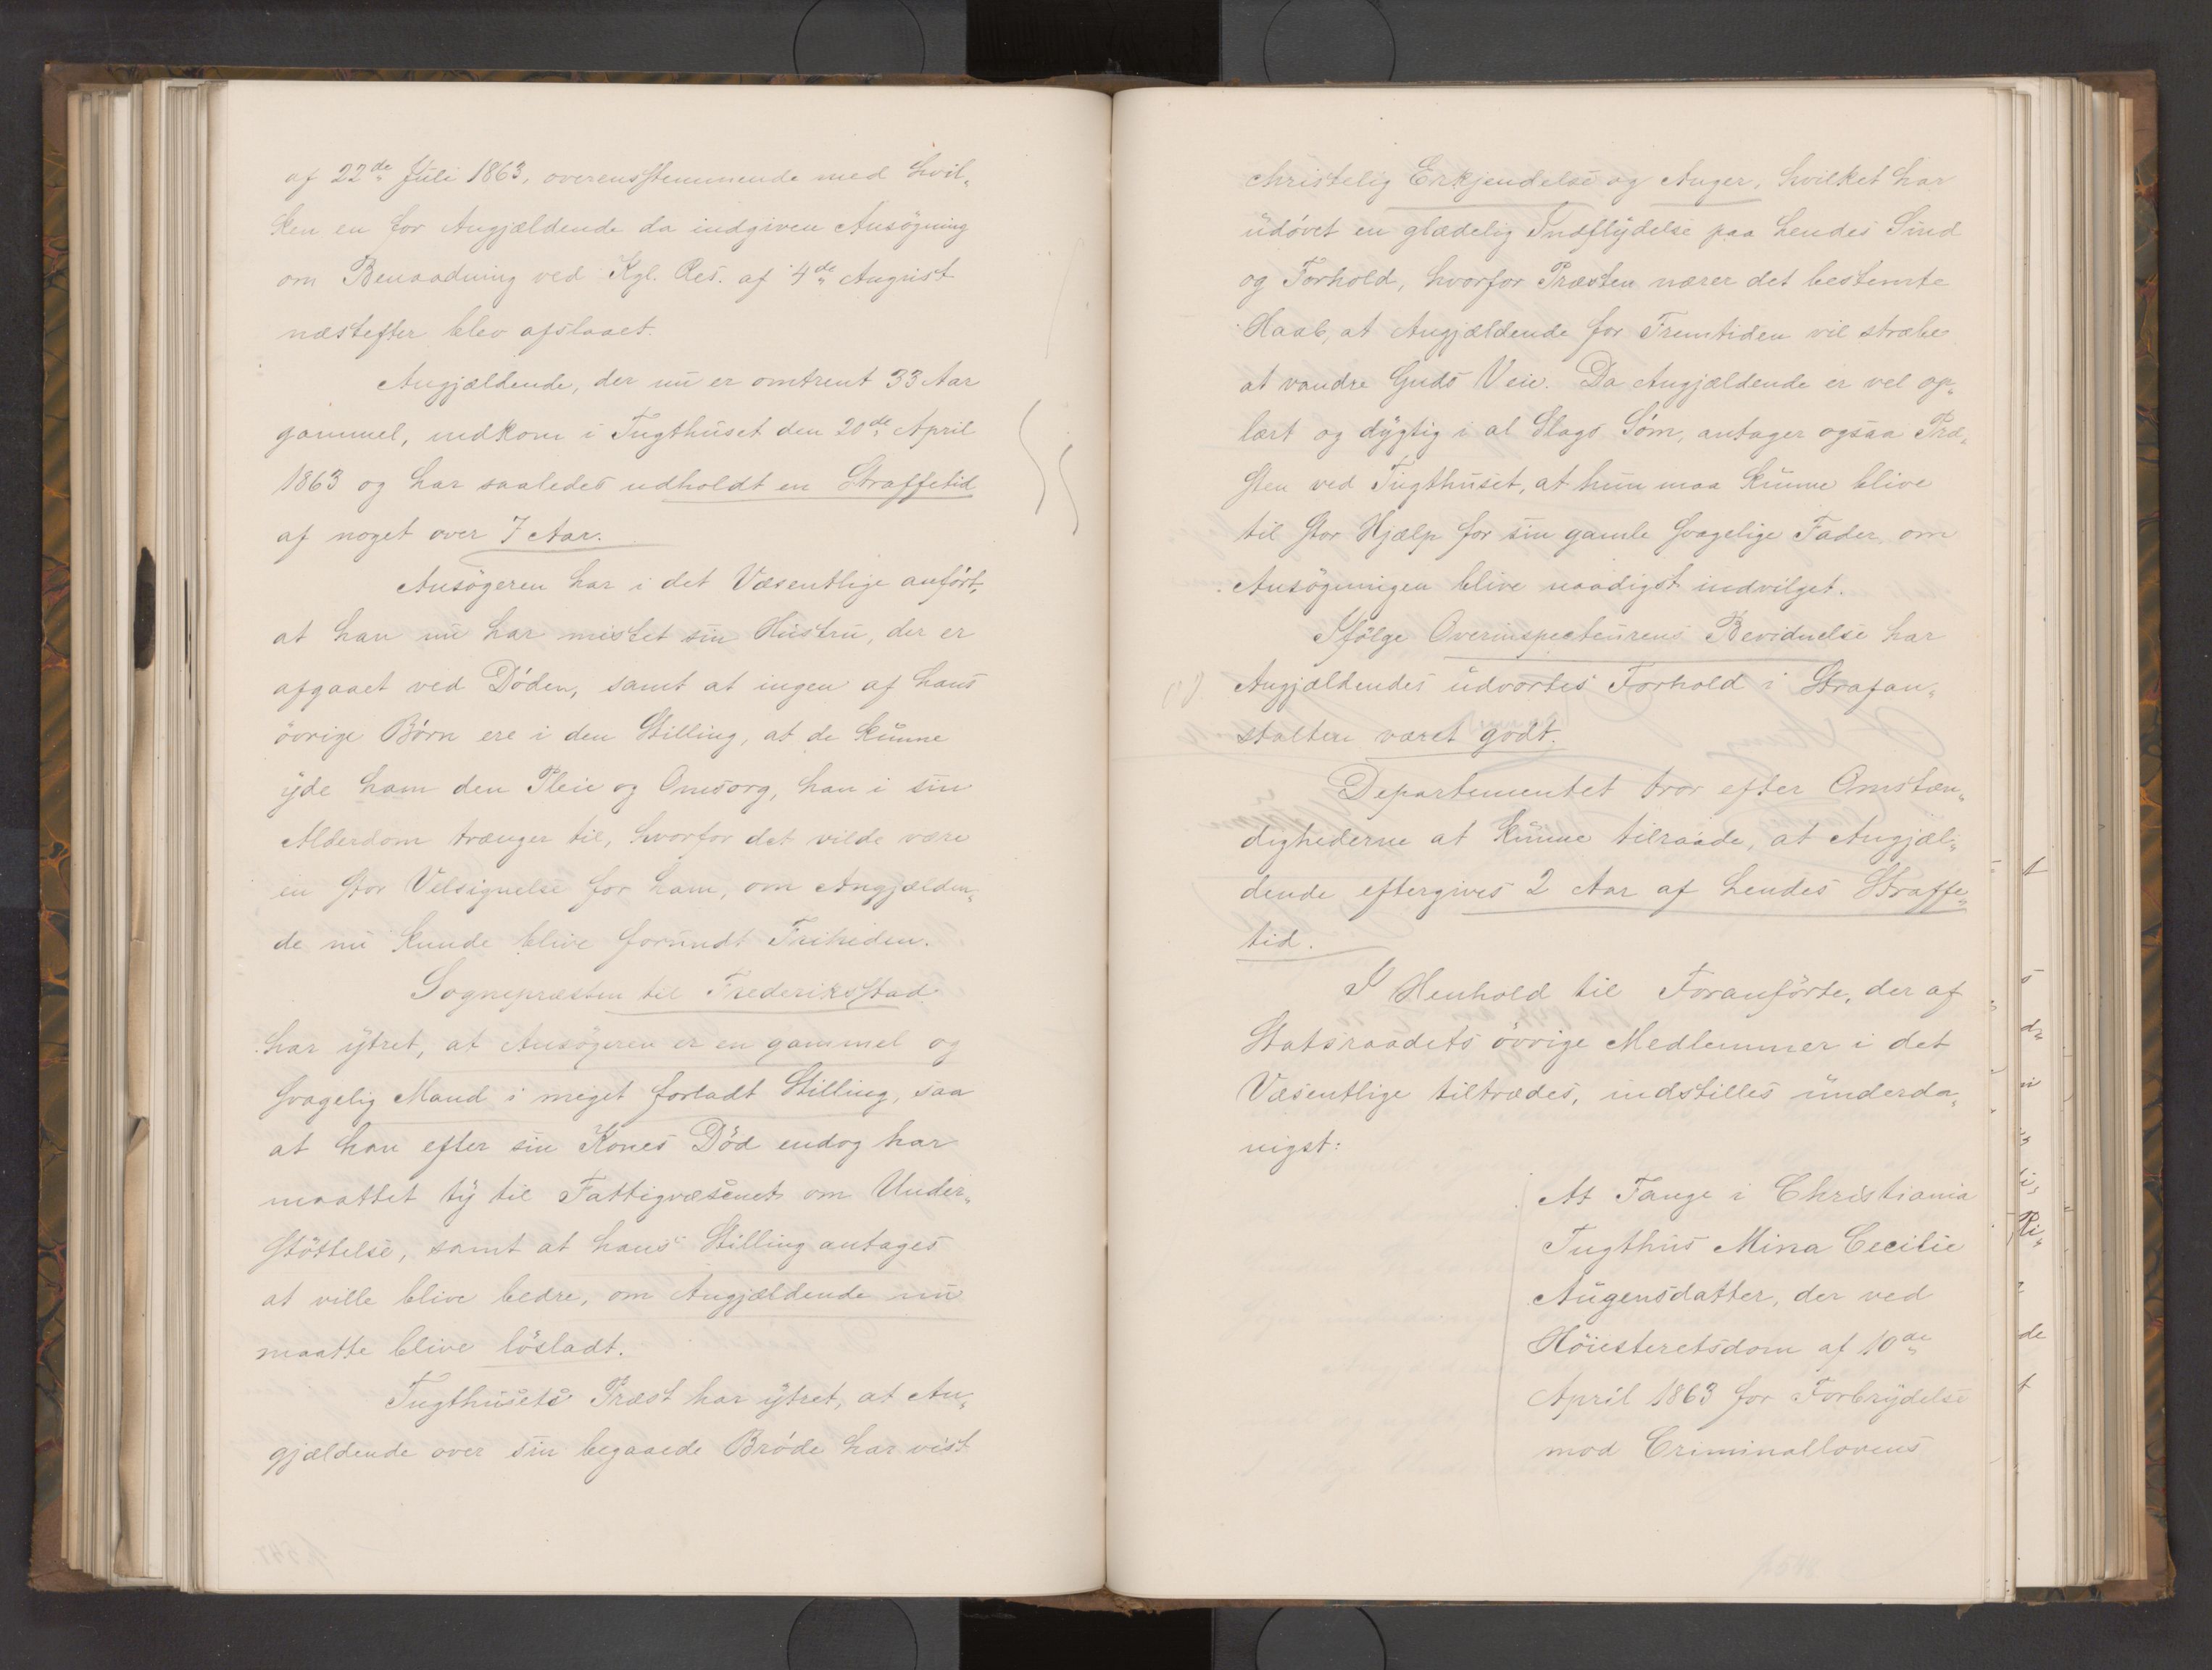 af 22de Juli 1863, overensstemmende med hvil„
ken en for Angjældende da indgiven Ansøgning
om Benaadning ved Kgl. Res. af 4de August
næstefter blev afslaaet.
Angjældende, der nu er omtrent 33 Aar
gammel, indkom i Tugthuset den 20de April
1863 og har saaledes udholdt en Straffetid
af noget over 7 Aar.
Ansøgeren har i det Væsentlige anført,
at han nu har mistet sin Hustru, der er
afgaaet ved Døden, samt at ingen af hans
øvrige Børn ere i den Stilling, at de kunne
yde ham den Pleie og Omsorg, han i sin
Alderdom trænger til, hvorfor det vilde være
en stor Velsignelse for ham, om Angjælden„
de nu kunde blive forundt Friheden.
Sognepræsten til Frederiksstad
har ytret, at Ansøgeren er en gammel og
svagelig Mand i meget forladt Stilling, saa
at han efter sin Kones Død endog har
maattet ty til Fattigvæsenet om Under„
støttelse, samt at hans Stilling antages
at ville blive bedre, om Angjældende nu
maatte blive løsladt.
Tugthusets Præst har ytret, at An„
gjældende over sin begaaede Brøde har vist
christelig Erkjendelse og Anger, hvilket har
udøvet en glædelig Indflydelse paa hendes Sind
og Forhold, hvorfor Præsten nærer det bestemte
Haab, at Angjældende for Fremtiden vil stræbe
at vandre Guds Veie. Da Angjældende er vel op„
lært og dygtig i al Slags Søm, antager ogsaa Præ„
sten ved Tugthuset, at hun maa kunne blive
til stor Hjælp for sin gamle svagelige Fader, om
Ansøgningen blive naadigst indvilget.
Ifølge Overinspecteurens Bevidnelse har
Angjældendes udvortes Forhold i Strafan„
stalten været godt.
Departementet tror efter Omstæn„
dighederne at kunne tilraade, at Angjæl„
dende eftergives 2 Aar af hendes Straffe„
tid.
I Henhold til Foranførte, der af
Statsraadets øvrige Medlemmer i det
Væsentlige tiltrædes, indstilles underda„
nigst:
At Fange i Christiania
Tugthus Mina Cecilie
Augensdatter, der ved
Høiesteretsdom af 10de
April 1863 for Forbrydelse
mod Criminallovens